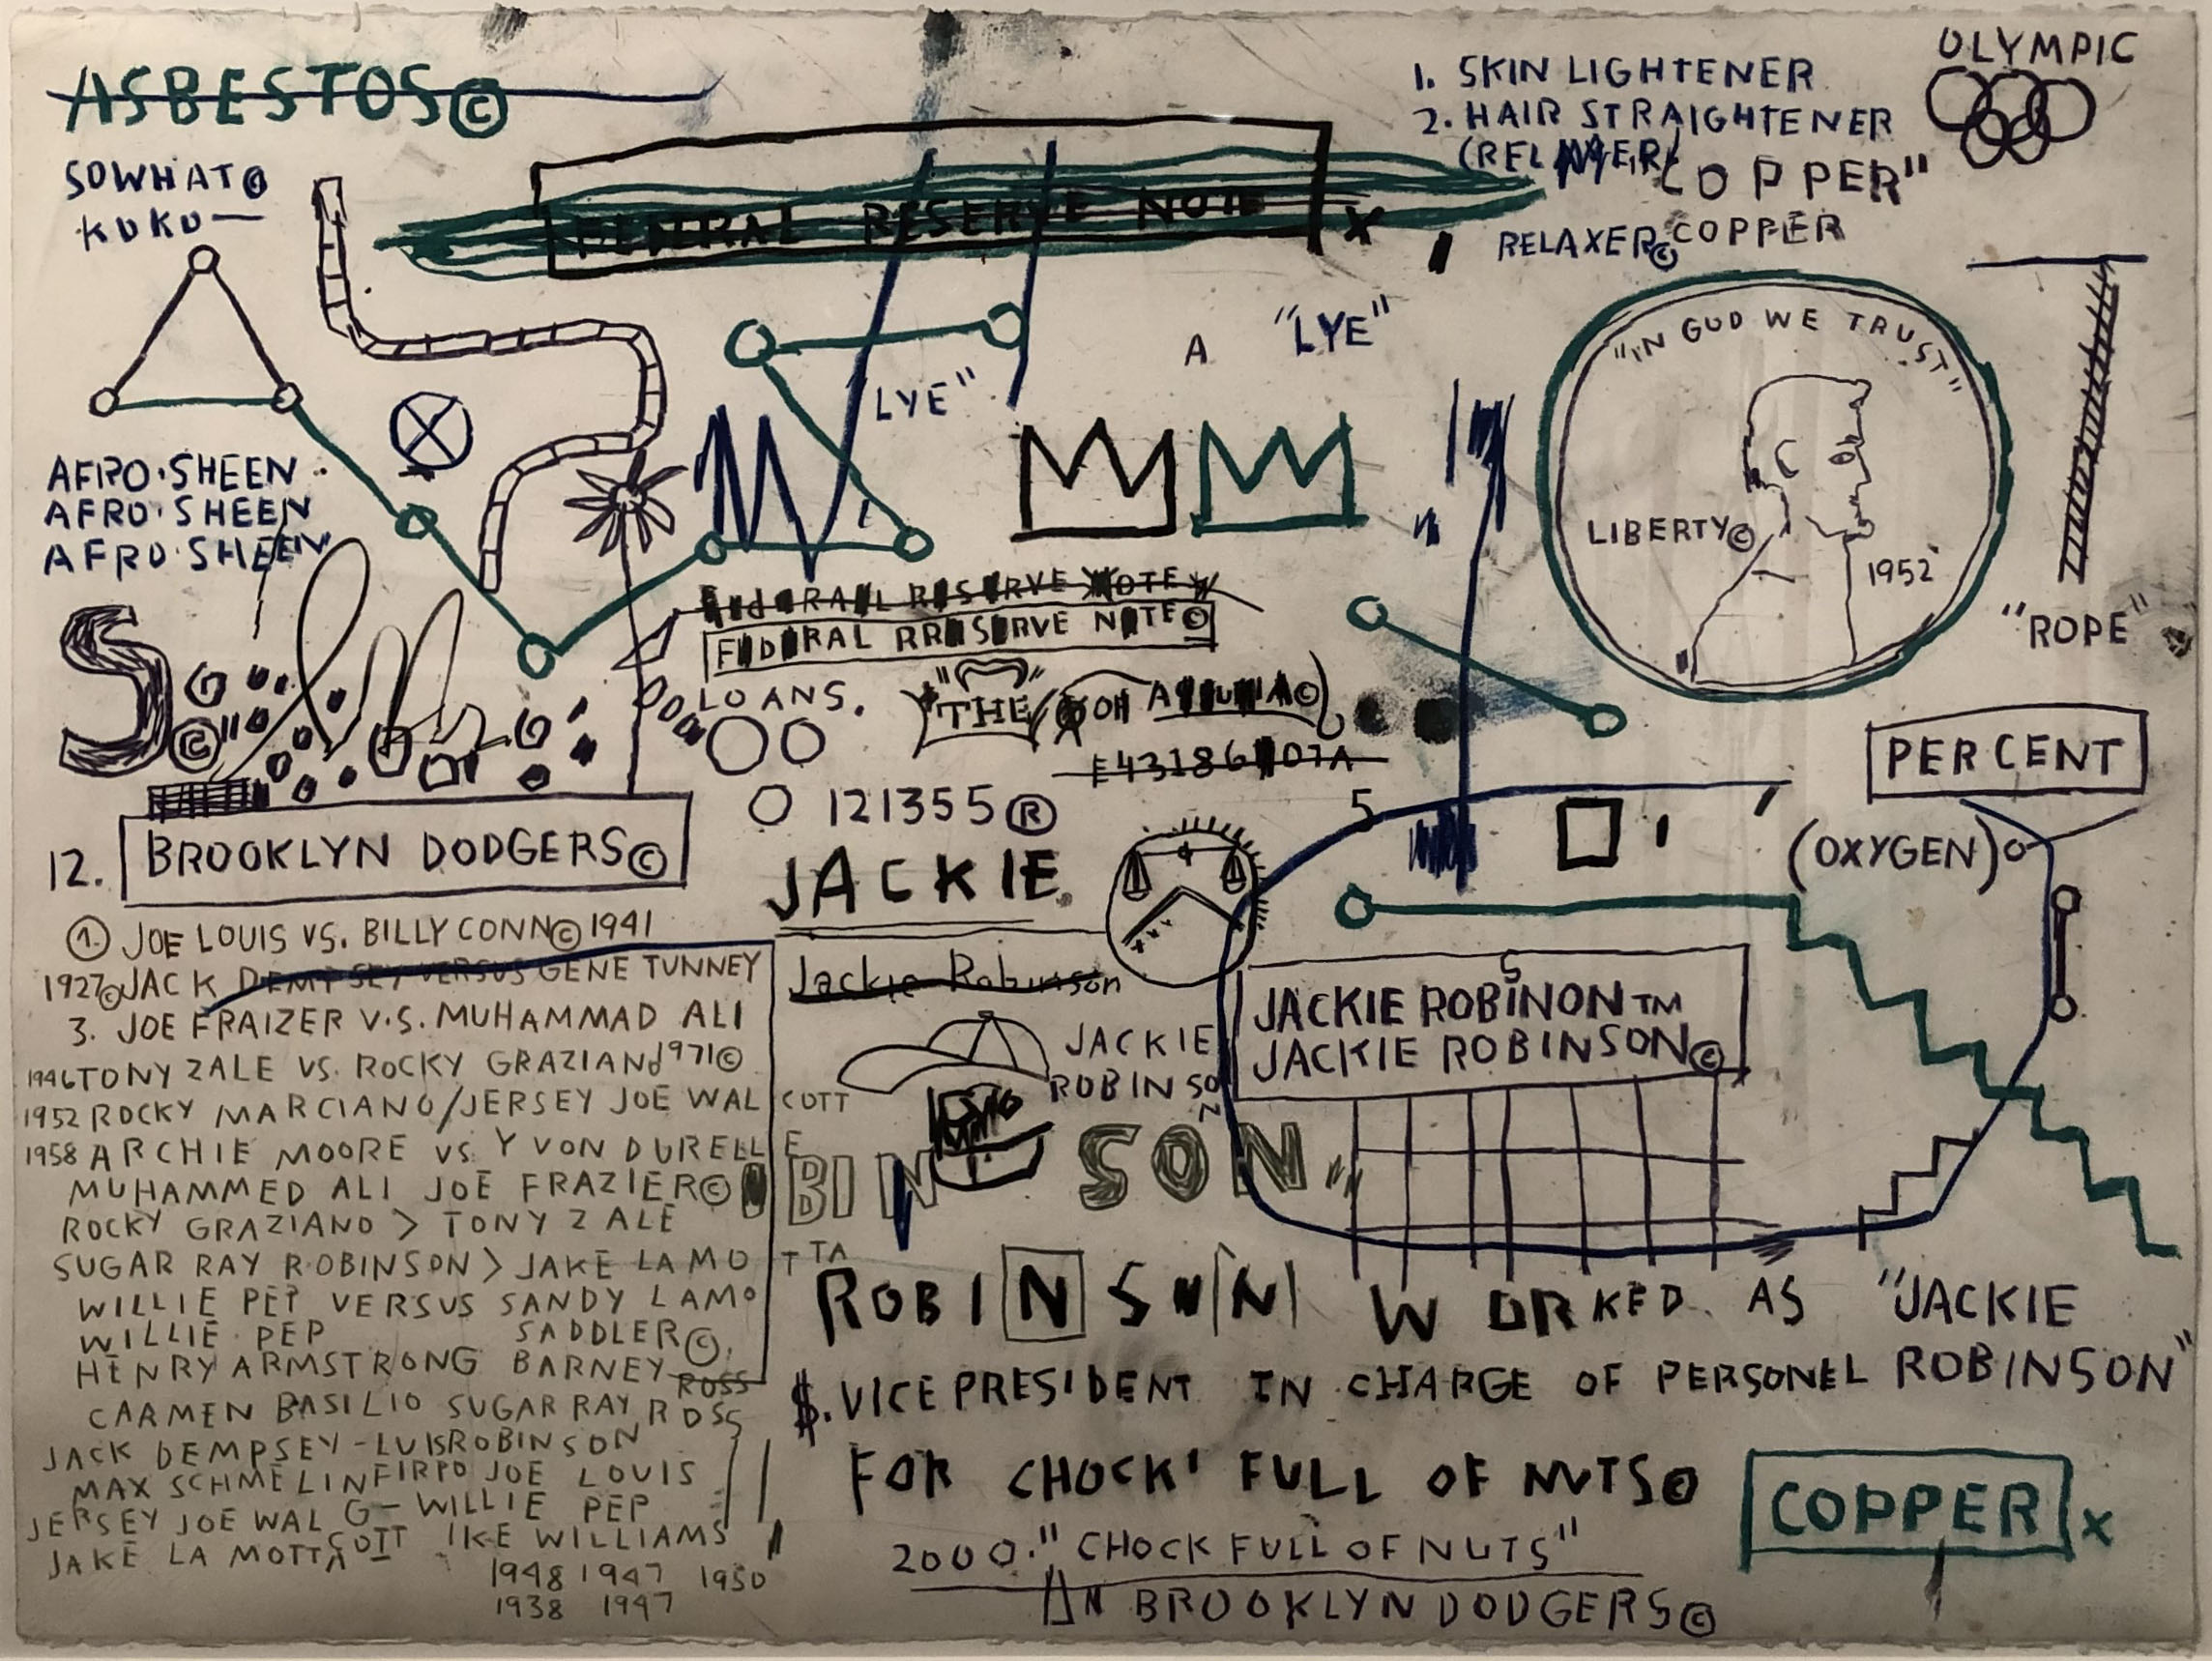 ASBESTOS©
SOWHAT©
KUKU—
RESERVE NOTE
X
1. SKIN LIGHTENER
2. HAIR STRAIGHTENER
OLYMPIC
COPPER"
RELAXER© COPPER
"LYE"
A
LYE"
AFRO·SHEEN
AFRO·SHEEN
AFRO·SHEEN
"IN GOD WE TRUST"
LIBERTY©
1952
"ROPE"
FEDERAL RESERVE NOTE
FEDERAL RRESERVE NOTE©
LOANS.
"THE
S.©"
E43186 07A
PERCENT
5
121355®
(OXYGEN)
12. BROOKLYN DODGERS©
JACKIE
1. JOE LOUIS VS. BILLY CONN© 1941
1927© JACK DEMPSEY VERSUS GENE TUNNEY
3. JOE FRAIZER V.S. MUHAMMAD ALI
1971©
1946 TONY ZALE VS. ROCKY GRAZIANO
1952 ROCKY MARCIANO/JERSEY JOE WALCOTT
1958 ARCHIE MOORE VS. YVON DURELLE
MUHAMMED ALI JOE FRAZIER©
ROCKY GRAZIANO > TONY ZALE
SUGAR RAY ROBINSON > JAKE LAMOTTA
WILLIE PEP VERSUS SANDY LAMO
WILLIE PEP SADDLER©.
HENRY ARMSTRONG BARNEY ROSS
CARMEN BASILIO SUGAR RAY ROSS
JACK DEMPSEY-LUIS ROBINSON
FIRPO JOE LOUIS
MAX SCHMELING-WILLIE PEP
JERSEY JOE WALCOTT IKE WILLIAMS
JAKE LA MOTTA
1948 1947 1950
1938 1947
Jackie Robinson
JACKIE
ROBINSON
S
JACKIE ROBINON TM
JACKIE ROBINSON©
BINSON
ROBINSON WORKED AS "JACKIE
ROBINSON"
$. VICE PRESIDENT IN CHARGE OF PERSONEL
FOR CHOCK' FULL OF NUTS©
2000." CHOCK FULL OF NUTS"
BROOKLYN DODGERS©
COPPER x